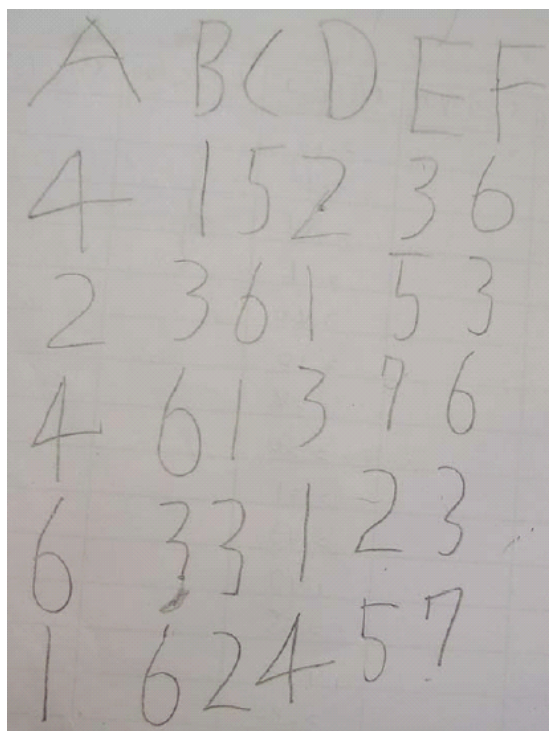 A B C D E F
4 1 5 2 3 6
2 3 6 1 5 3
4 6 1 3 7 6
6 3 3 1 2 3
1 6 2 4 5 7